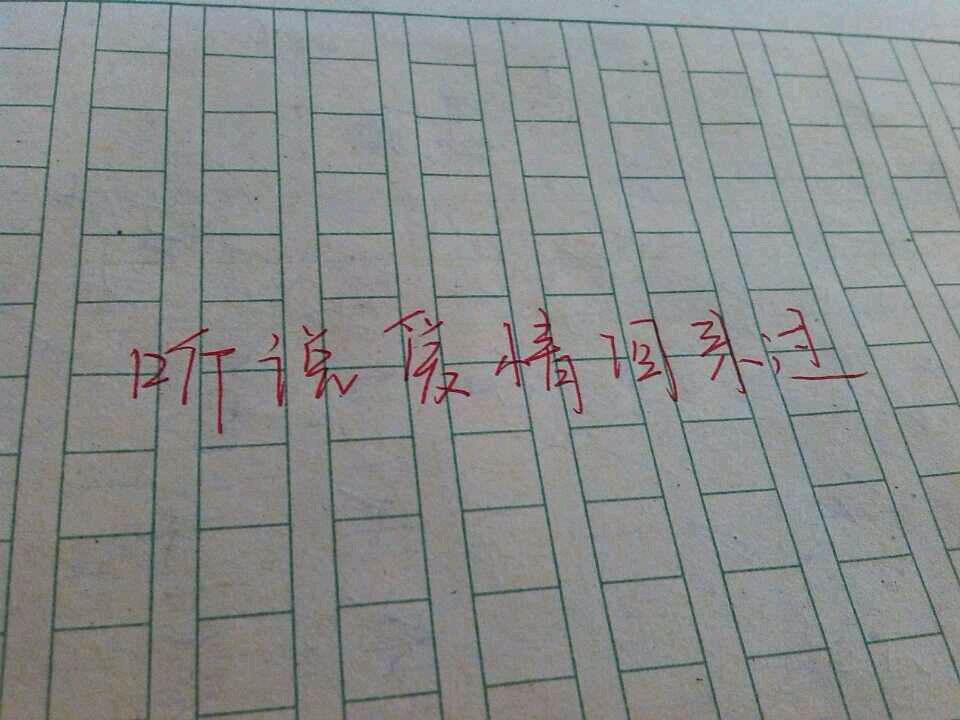 听说爱情回来过